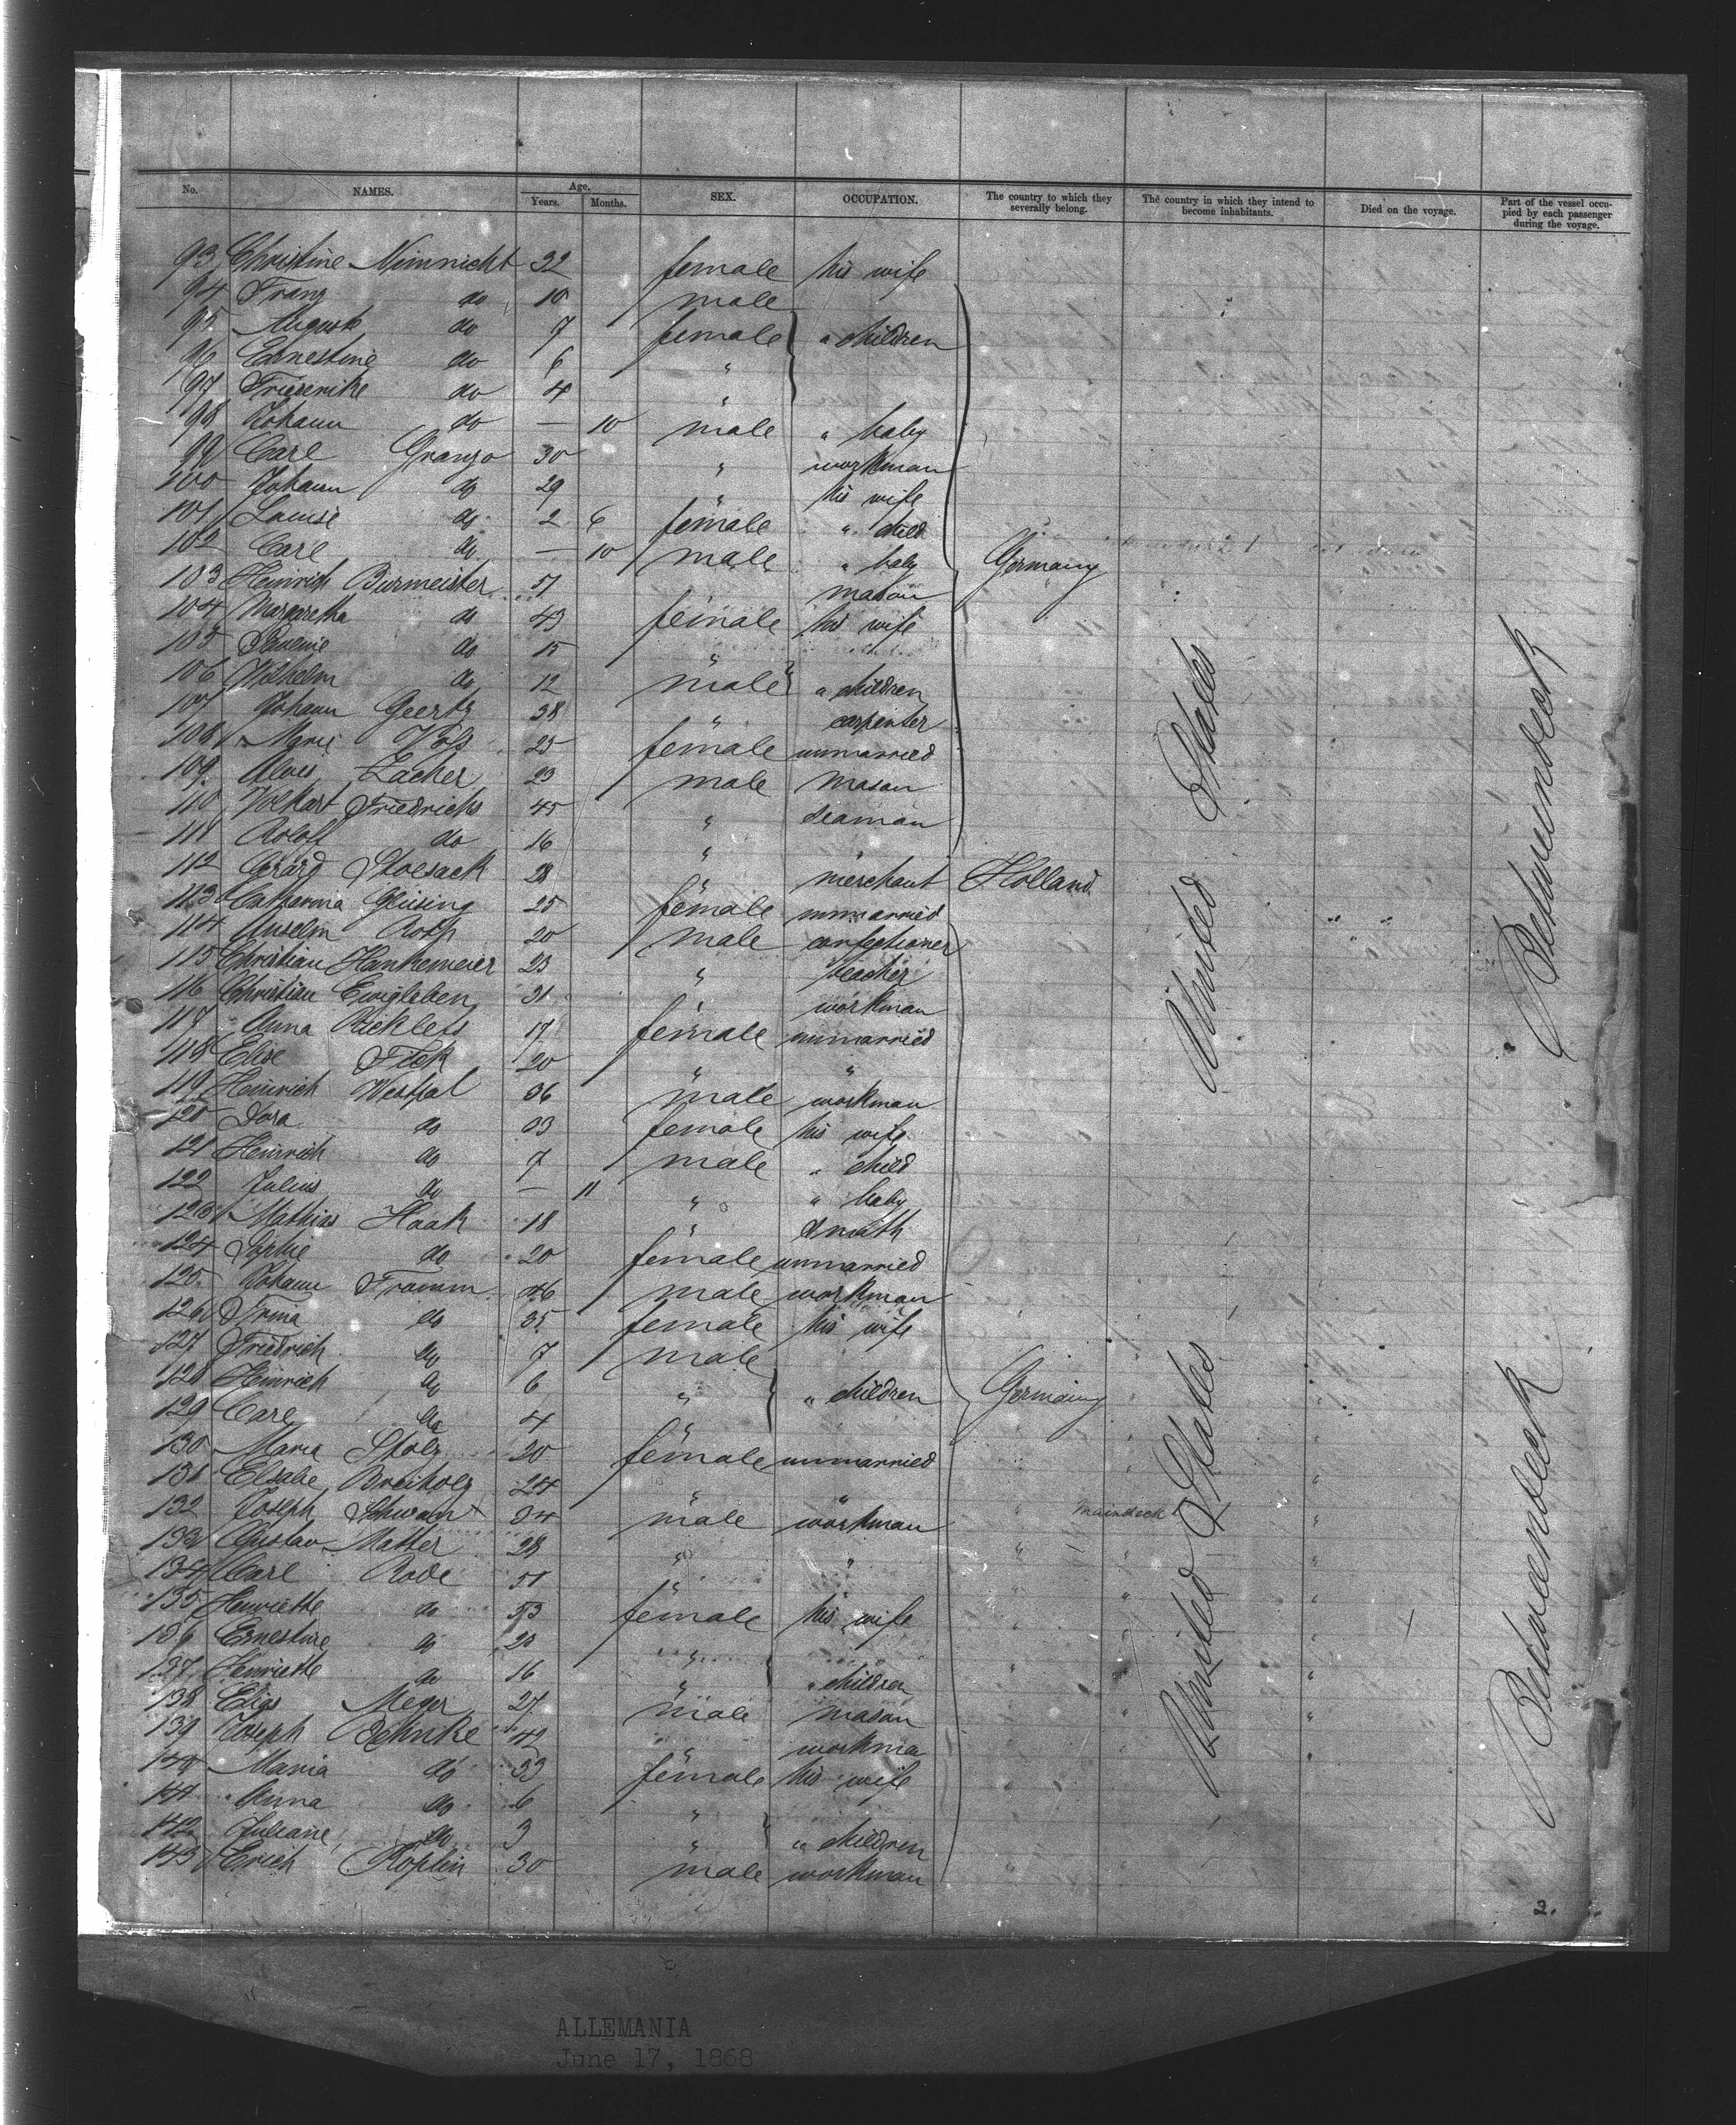 No. NAMES. Age. Years. Months. SEX. OCCUPATION. The country to which they severally belong. The country in which they intend to become inhabitants. Died on the voyage. Part of the vessel occupied by each passenger during the voyage.
93 Christine Nimnicht 32 female his wife
94 Franz do 10 male
95 Auguste do 7 female " children
96 Ernestine do 6 "
97 Friederike do 4 "
98 Johann do — 10 male " baby
99 Carl Granzo 30 " workman
100 Johann do 29 " his wife
101 Louise do 2 6 female " child
102 Carl do — 10 male " baby Germany
103 Heinrich Burmeister 51 " mason
104 Margaretha do 43 female his wife
105 do 15 "
106 Wilhelm do 12 male " children
107 Johann Geertz 38 " carpenter
108 Marie Voss 25 female unmarried
109 Alois Lacher 23 male mason
110 Volkart Friedrichs 45 " seaman
111 Roloff do 16 " "
112 Gerard Stoesack 28 " merchant Holland
113 Catharina Glüsing 25 female unmarried
114 Anselm 20 male confectioner
115 Christian Hankemeier 23 " teacher
116 Christian Ewigleben 31 " workman
117 Anna Ricklefs 17 female unmarried
118 Elise Fick 20 " "
119 Heinrich Westfal 36 male workman
120 Dora do 33 female his wife
121 Heinrich do 7 male " child
122 Julius do — 11 " " baby
123 Mathias Haak 18 " smith
124 Sophie do 20 female unmarried
125 Johann Framm 46 male workman
126 Trina do 35 female his wife
127 Friedrich do 7 male
128 Heinrich do 6 " " children Germany
129 Carl do 4 "
130 Maria Stolz 20 female unmarried
131 Elsabe Breiholz 24 " "
132 Joseph Schwant 34 male workman Maindeck
133 Gustav Matter 28 " "
134 Carl Rode 51 " "
135 Henriette do 53 female his wife
136 Ernestine do 20 "
137 Henriette do 16 " " children
138 Elias Meyer 27 male mason
139 Joseph Behnke 42 " workma
140 Maria do 33 female his wife
141 Anna do 6 "
142 Juliane do 3 " " children
143 Erich Koplin 30 male workman
United States
United States
Betweendeck
Betweendeck
2.
ALLEMANIA
June 17, 1868